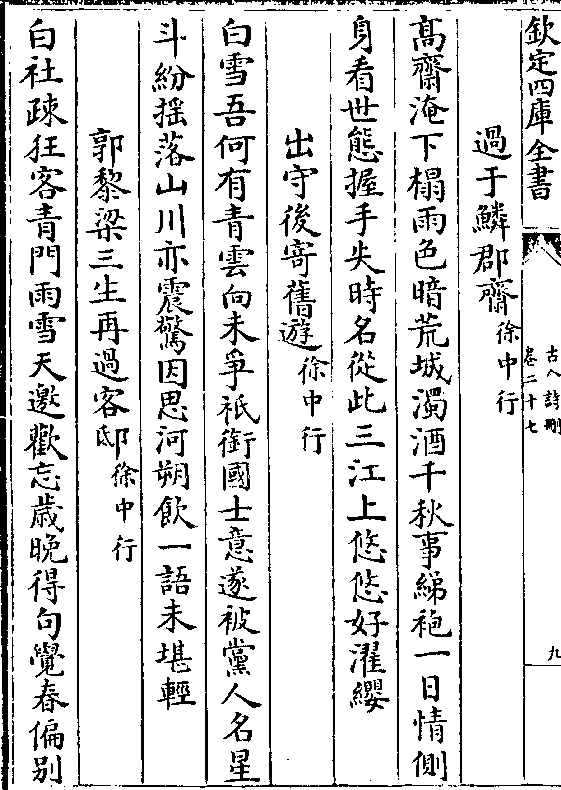 欽定四庫全書
古今詩刪
卷二十七
九
過于鱗郡齋徐中行
髙齋淹下榻雨色暗荒城濁酒千秋事綈袍一日情側
身看世態握手失時名從此三江上悠悠好濯纓
出守後寄舊遊徐中行
白雪吾何有青雲向未爭祇銜國士意遂被黨人名星
斗紛揺落山川亦震驚因思河朔飲一語未堪輕
郭黎梁三生再過客邸徐中行
白社疎狂客青門雨雪天邀歡忘歲晚得句覺春偏别